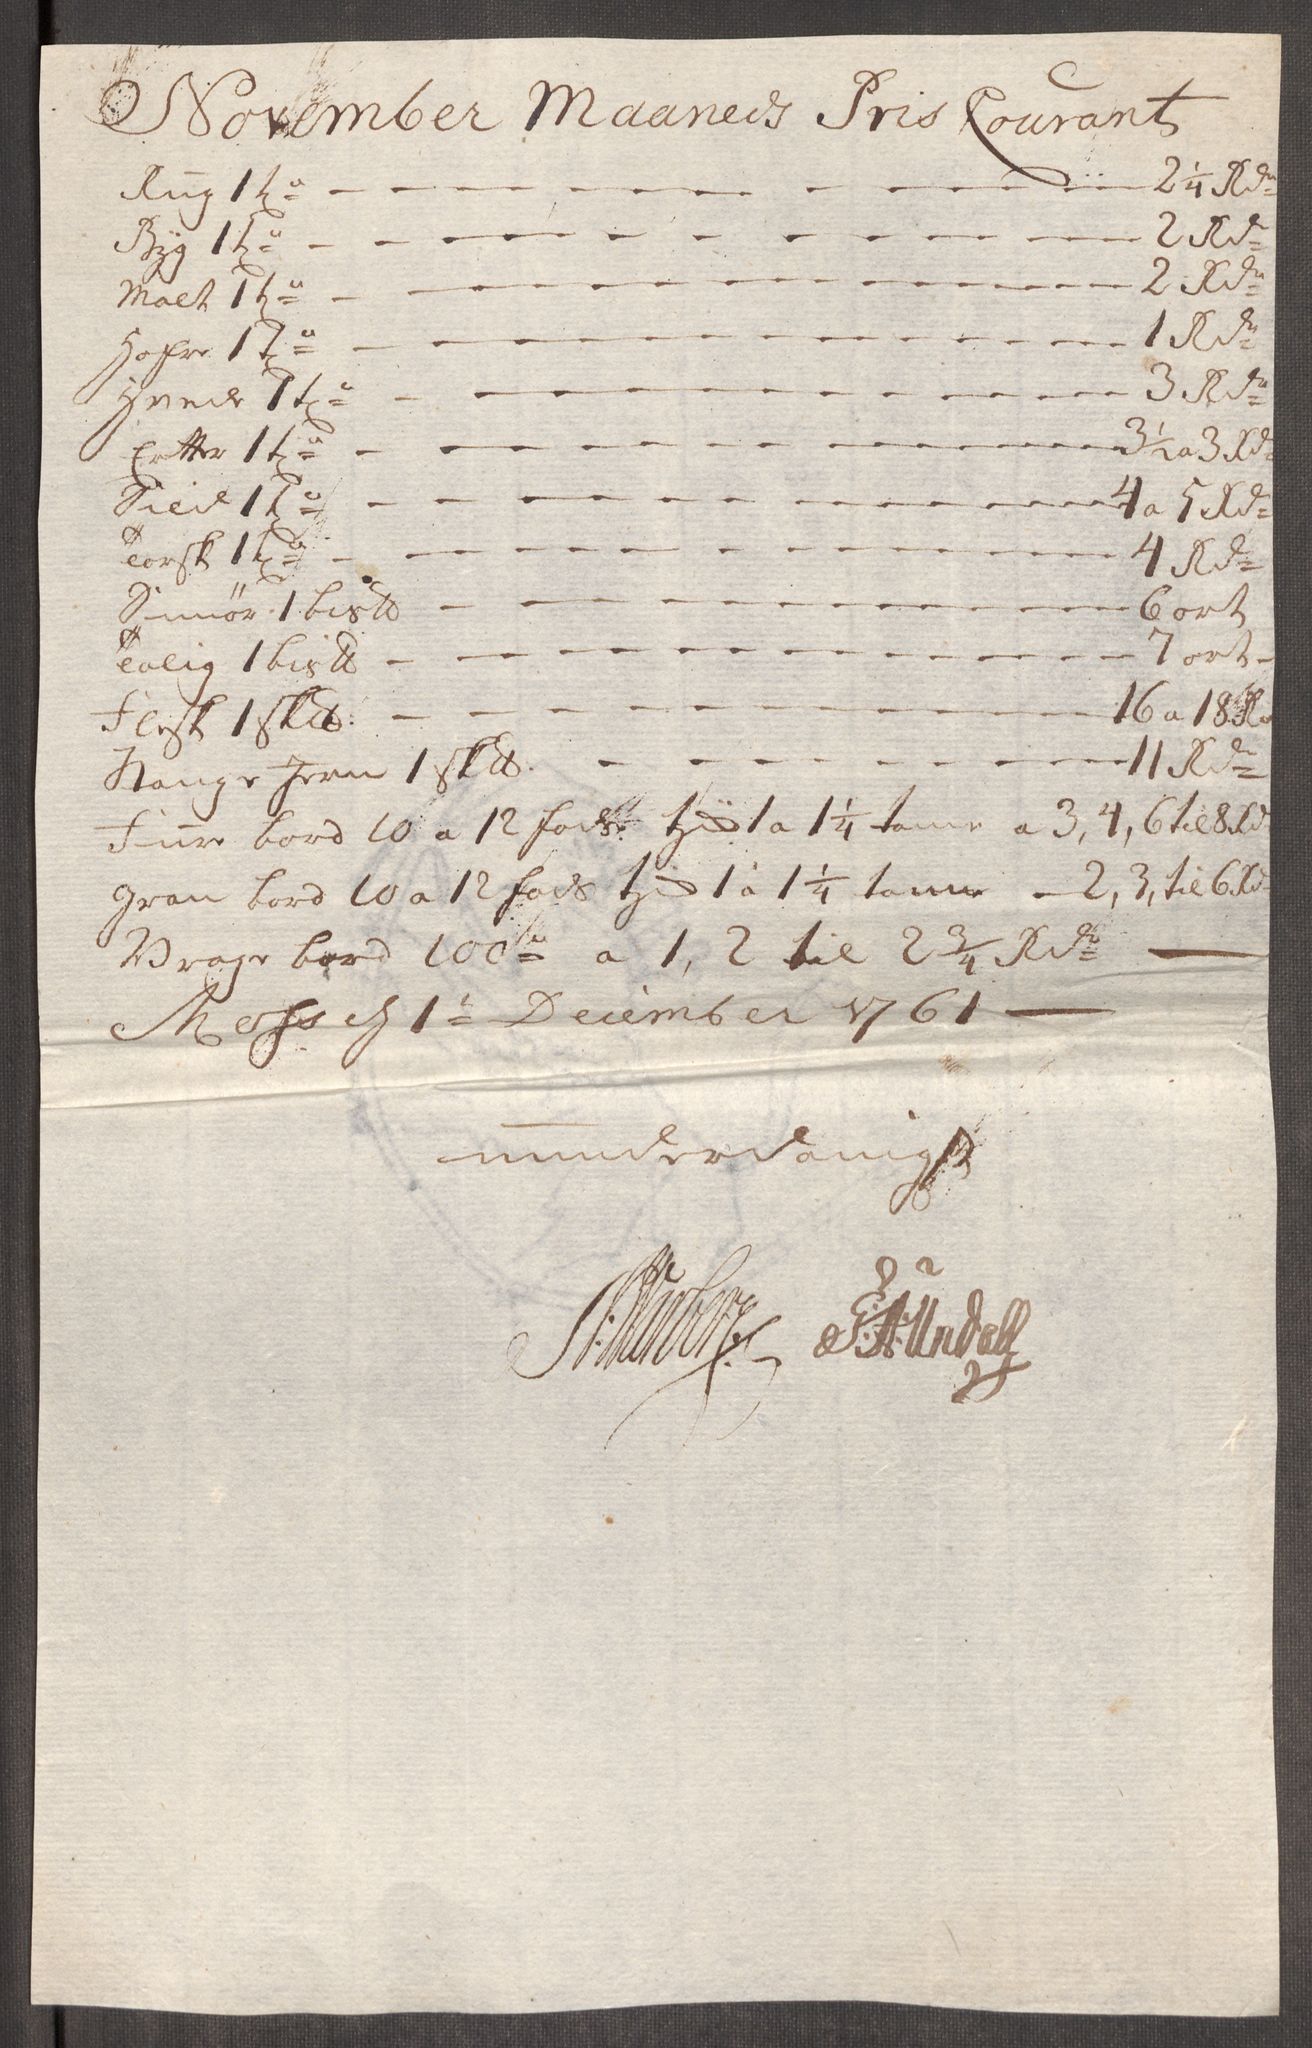 November Maaneds Pris Courant
Rug 1 tø — 2 1/4 Rdr
Byg 1 tø — 2 Rdr
Malt 1 tø — 2 Rdr
Hafre 1 tø — 1 Rdr
Hvede 1 tø — 3 Rdr
Ertter 1 tø — 3 1/2 a 3 Rdr
Sild 1 tø — 4 a 5 Rdr
Torsk 1 tø — 4 Rdr
Smør 1 bis℔ — 6 ort
Talig 1 bis℔ — 7 ort
Flesk 1 sk℔ — 16 a 18 R
Stange Jern 1 sk℔ — 11 Rdr
Fure bord 10 a 12 fods 1 a 1 1/4 tome a 3, 4, 6 til 8 Rd
Gran bord 10 a 12 fods 1 a 1 1/4 tomme — 2, 3, til 6 Rd
Vrage bord 100 a 1, 2 til 2 3/4 Rdr —
Moss d 1 December 1761 —
underdanigst